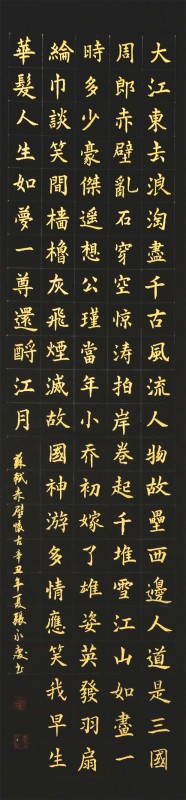 大江東去浪淘盡千古風流人物故壘西邊人道是三國
周郎赤壁亂石穿空惊涛拍岸卷起千堆雪江山如畫一
時多少豪傑遙想公瑾當年小乔初嫁了雄姿英發羽扇
綸巾談笑間檣櫓灰飛煙滅故國神游多情應笑我早生
華髮人生如夢一尊還酹江月
蘇軾赤壁懷古辛丑年夏張永慶书